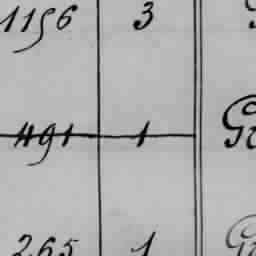 1156 3
491 1 G
265 1 G